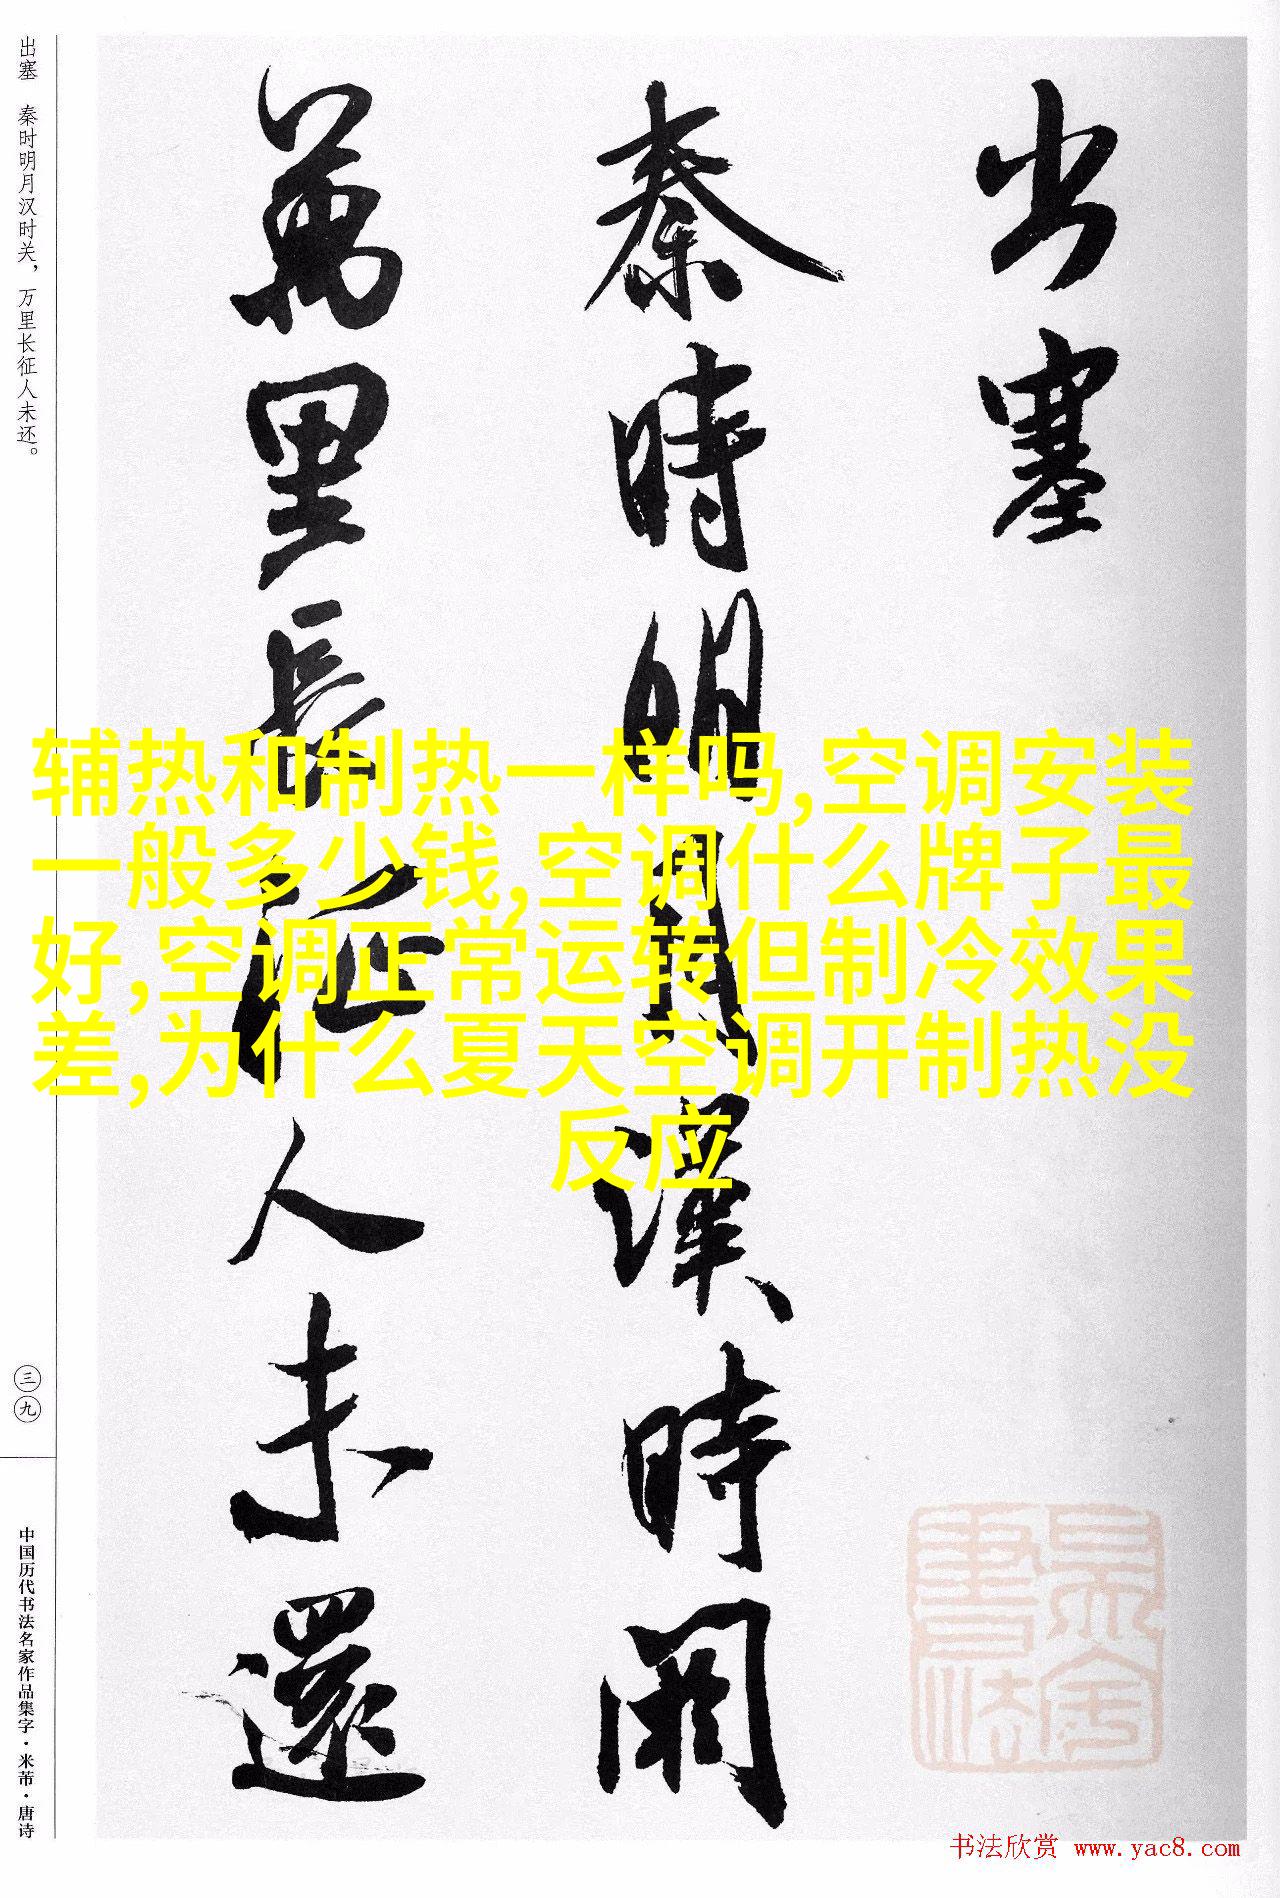 出塞
秦時明月漢時関
萬里長征人未還
出塞 秦时明月汉时关，万里长征人未还。
三九
中国历代书法名家作品集字·米芾·唐诗
辅热和制热一样吗,空调安装
一般多少钱,空调什么牌子最
好,空调正常运转但制冷效果
差,为什么夏天空调开制热没
反应
书法欣赏 www.yac8.com